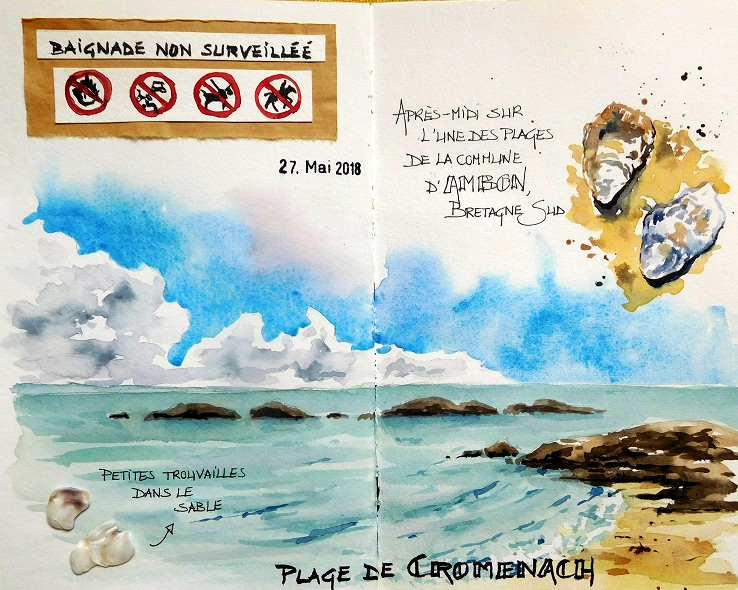 BAIGNADE NON SURVEILLÉÉ
27. Mai 2018
APRÈS-MIDI SUR
L'UNE DES PLAGES
DE LA COMMUNE
D'AMBON,
BRETAGNE SUD
PETITES TROUVAILLES
DANS LE
SABLE
PLAGE DE CROMENACH